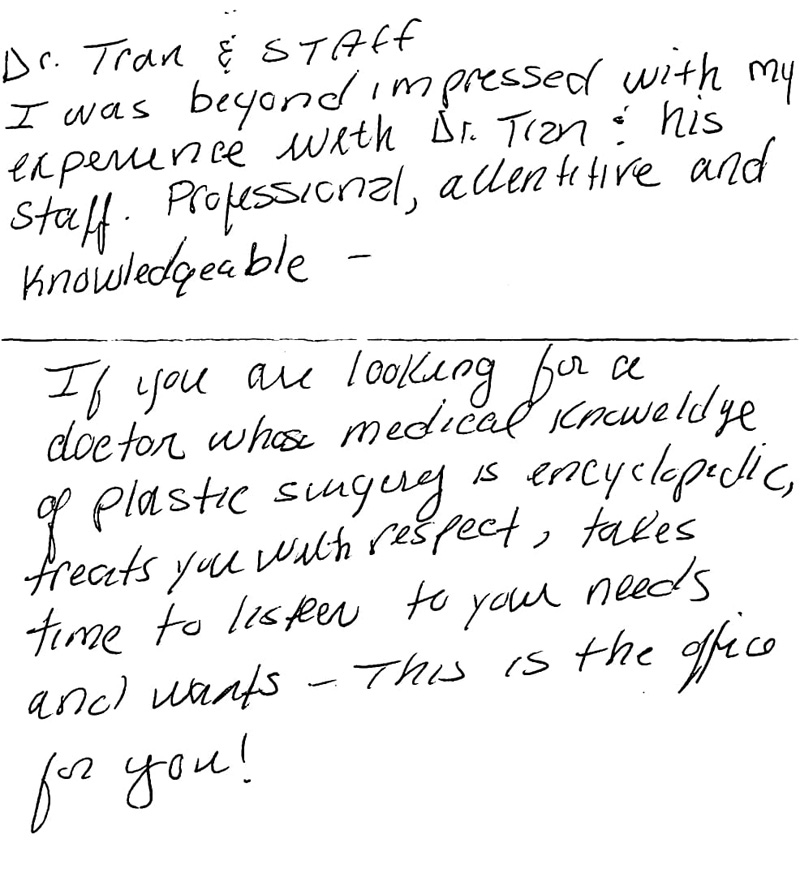 Dr. Tran & STAFF
I was beyond impressed with my
experience with Dr. Tran & his
staff. Professional, attentitive and
Knowledgeable -
If you are looking for a
doctor whose medical knoweldge
of plastic surgery is encyclopedic,
treats you with respect, takes
time to listen to your needs
and wants - This is the office
for you!